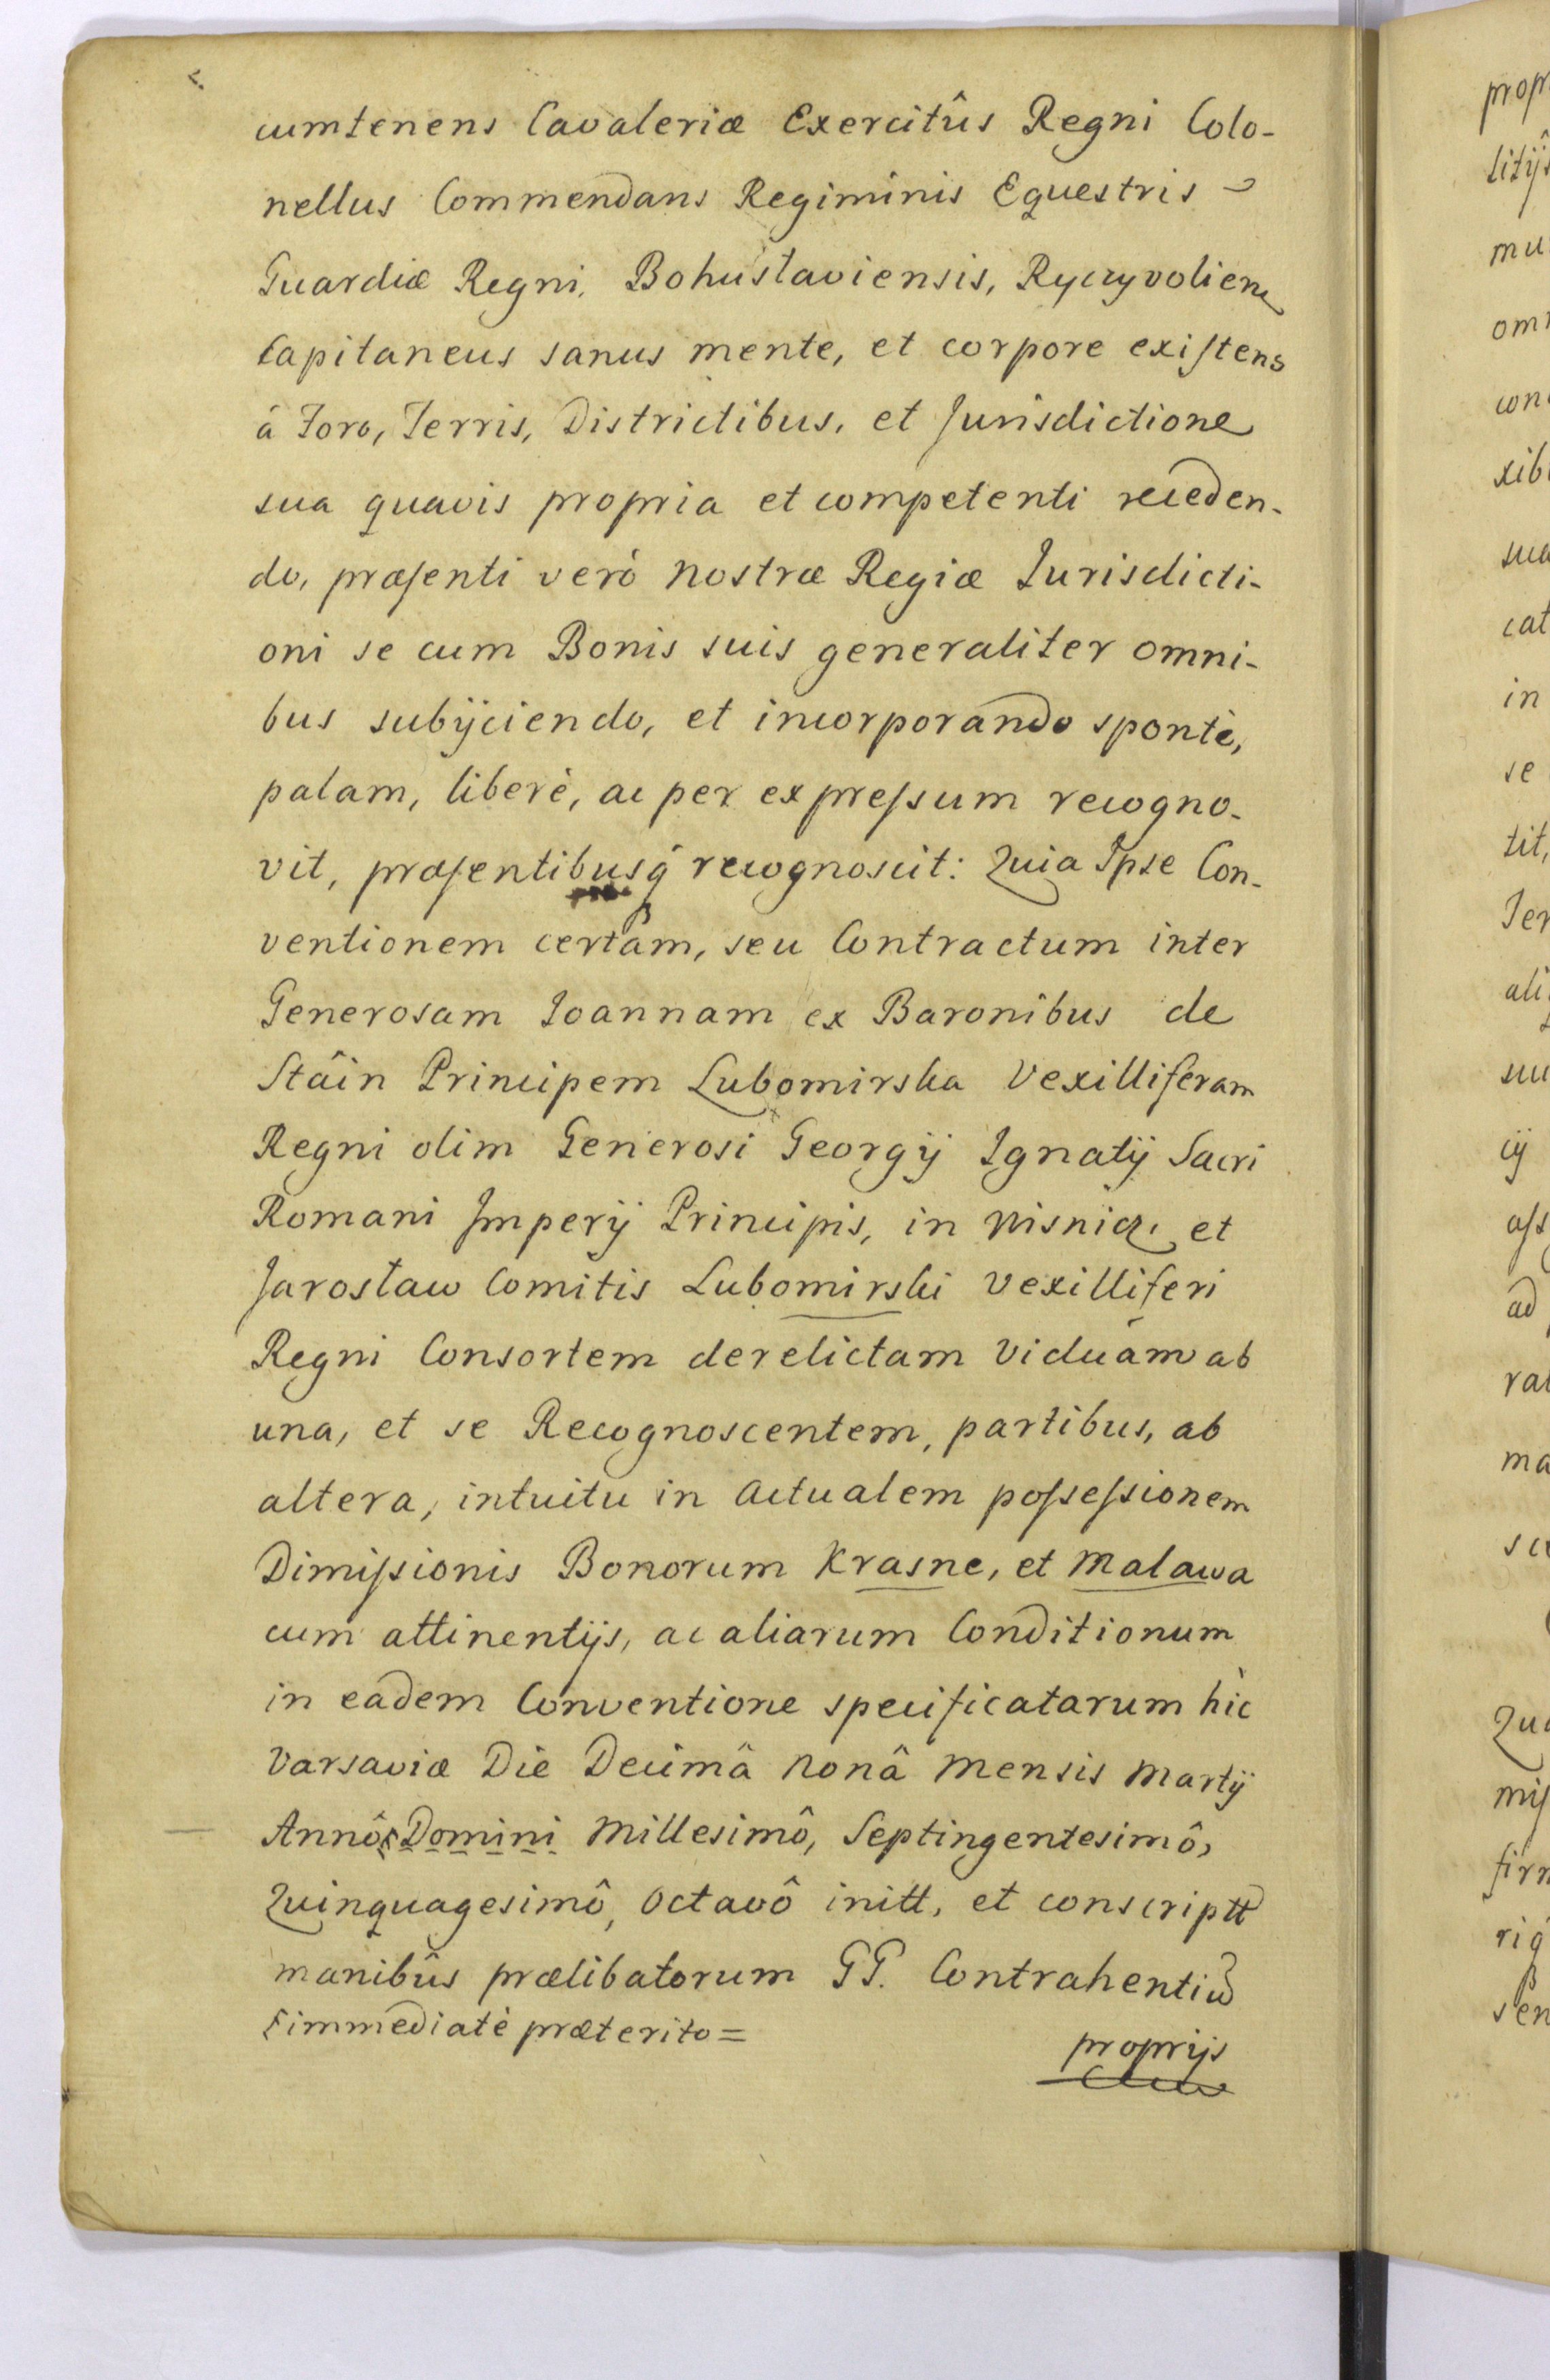 cumtenens Cavaleriæ Exercitûs Regni Colo-
nellus Commendans Regiminis Equestris
Guardiæ Regni, Bohuslaviensis, Ryczyvoliens
Capitaneus sanus mente, et corpore existens
á Foro, Terris, Districtibus, et Jurisdictione
sua quavis propria et competenti receden-
do, præsenti veró Nostræ Regiæ Jurisdicti-
oni se cum Bonis suis generaliter omni-
bus subijciendo, et incorporando spontè,
palam, liberè, ac per expressum recogno-
vit, præsentibusq́ recognoscit: Quia Ipse Con-
ventionem certam, seu Contractum inter
Generosam Joannam ex Baronibus de
Stâin Principem Lubomirska Vexilliferam
Regni olim Generosi Georgij Ignatij Sacri
Romani Imperij Principis, in Wisnicz, et
Jarosław Comitis Lubomirski Vexilliferi
Regni Consortem derelictam Viduam ab
una, et se Recognoscentem, partibus, ab
altera, intuitu in actualem possessionem
Dimissionis Bonorum Krasne, et Malawa
cum attinentijs, ac aliarum Conditionum
in eadem Conventione specificatarum hìc
Varsaviæ Die Decimâ Nonâ Mensis Martij
Annô Domini Millesimô, Septingentesimô,
Quinquagesimô, Octavô initt, et conscriptt
manibûs prælibatorum GG. Contrahentiũ
immediatè præterito =
proprijs